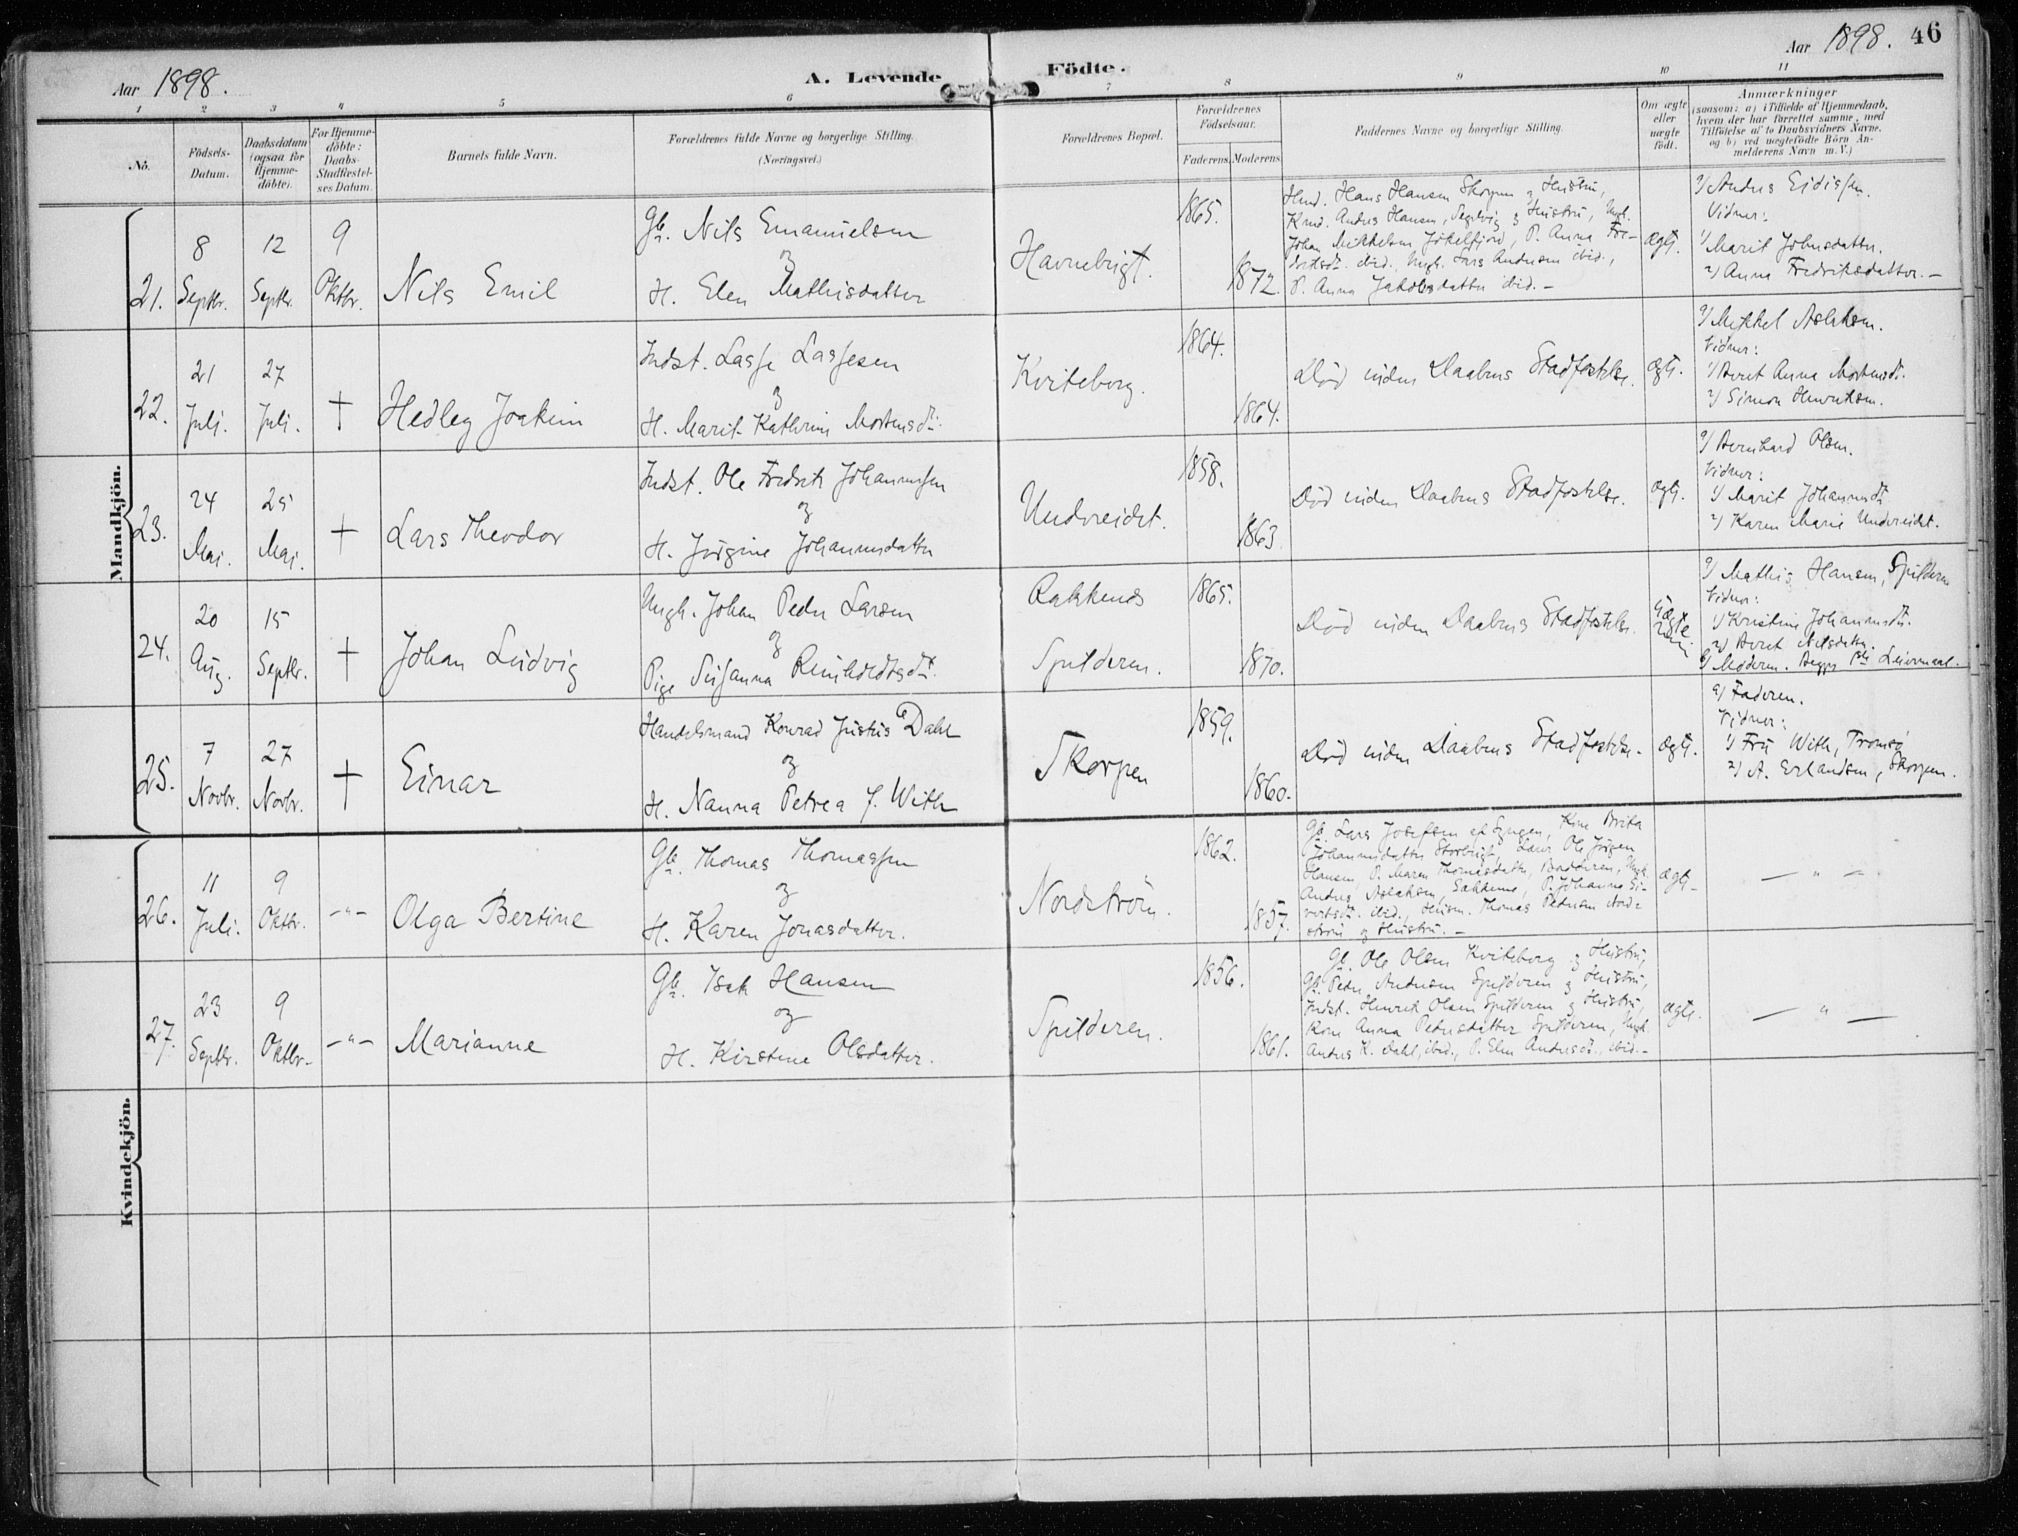 Aar 1898.
A. Levende Födte.
Aar 1898. 46
1 2 3 4 5 6 7 8 9 10 11
No.
Födsels-
Datum.
Daabsdatum
(ogsaa for
Hjemme-
döbte).
For Hjemme-
döbte:
Daabs-
Stadfestel-
ses Datum.
Barnets fulde Navn.
Forældrenes fulde Navne og borgerlige Stilling.
(Næringsvei.)
Forældrenes Bopæl.
Forældrenes
Födselsaar.
Faderens. Moderens.
Faddernes Navne og borgerlige Stilling.
Om ægte
eller
uægte
födt.
Anmærkninger
(saasom: a) i Tilfælde af Hjemmedaab,
hvem der har forrettet samme, med
Tilföielse af to Daabsvidners Navne,
og b) ved uægtefödte Börn An-
melderens Navn m. V.)
Mandkjön.
21.
8
Septbr.
12
Septbr.
9
Oktbr.
Nils Emil
Gb. Nils Emanuelsen
og
H. Elen Mathisdatter
Havnebugt.
1865.
1872.
Hmd. Hans Hansen Skorpen og Hustru,
Kmd. Anders Hansen, Segelvig og Hustru, Ungk.
Johan Mikkelsen Jökelfjord, P. Anna Fre-
driksdt. ibid., Ungk. Lars Andersen ibid.,
P. Anna Jakobsdatter ibid. -
ægt.
a/ Anders Eidissen.
Vidner:
1/ Marit Johnsdatter.
2/ Anna Fredriksdatter. -
22.
21
Juli.
27
Juli.
†
Hedley Joakim
Indst. Lasse Lassesen
og
H. Marit Kathrine Mortensdt.
Kviteberg.
1864.
1864.
Död inden Daabens Stadfestelse.
ægt.
a/ Mikkel Aslaksen.
Vidner:
1/ Berit Anna Mortensdt.
2/ Simon Henriksen.
23.
24
Mai.
25
Mai.
†
Lars Theodor
Indst. Ole Fredrik Johannessen
og
H. Jörgine Johannesdatter
Undereidet.
1858.
1863.
Död inden Daabens Stadfestelse.
ægt.
a/ Bernhard Olsen.
Vidner:
1/ Marit Johannesdt.
2/ Karen Marie Undereidet.
24.
20
Aug.
15
Septbr.
†
Johan Ludvig
Ungk. Johan Peder Larsen
og
Pige Susanna Reinholdtsdt.
Rakkenes
Spilderen.
1865.
1870.
Död inden Daabens Stadfestelse.
Uægte
a/ Mathis Hansen, Spilderen
Vidner:
1/ Kristine Johannesdt.
2/ Berit Nilsdatter.
b/ Moderen. Begges 1ste Leiermaal.
25.
7
Novbr.
27
Novbr.
†
Einar
Handelsmand Konrad Justus Dahl
og
H. Nanna Petrea f. With
Skorpen
1859.
1860.
Död inden Daabens Stadfestelse.
ægt.
a/ Faderen.
Vidner:
1/ Fru With, Tromsö
2/ A. Erlandsen, Skorpen.
Kvindekjön.
26.
11
Juli.
9
Oktbr.
-"-
Olga Bertine
Gb. Thomas Thomassen
og
H. Karen Jonasdatter.
Nordström.
1862.
1857.
Gb. Lars Josefsen af Lyngen, Kone Brita
Johannesdatter Storbugt, Lærer Ole Jörgen
Hansen, P. Maren Thomasdatter, Badderen, Ungk.
Anders Aslaksen, P. Johanna Si-
vertsdt. ibid., Husm. Thomas Pedersen Nord-
ström og Hustru. -
ægt.
- " -
27.
23
Septbr.
9
Oktbr.
-"-
Marianne
Gb. Isak Hansen
og
H. Kirstine Olsdatter.
Spilderen.
1856.
1861.
Gb. Ole Olsen Kviteberg og Hustru,
Gb. Peder Andersen Spilderen og Hustru,
Indst. Henrik Olsen Spilderen og Hustru,
Kone Anna Pedersdatter Spilderen, Ungk.
Anders K. Dahl, ibid., P. Elen Andersdt. ibid. -
ægt.
- " -